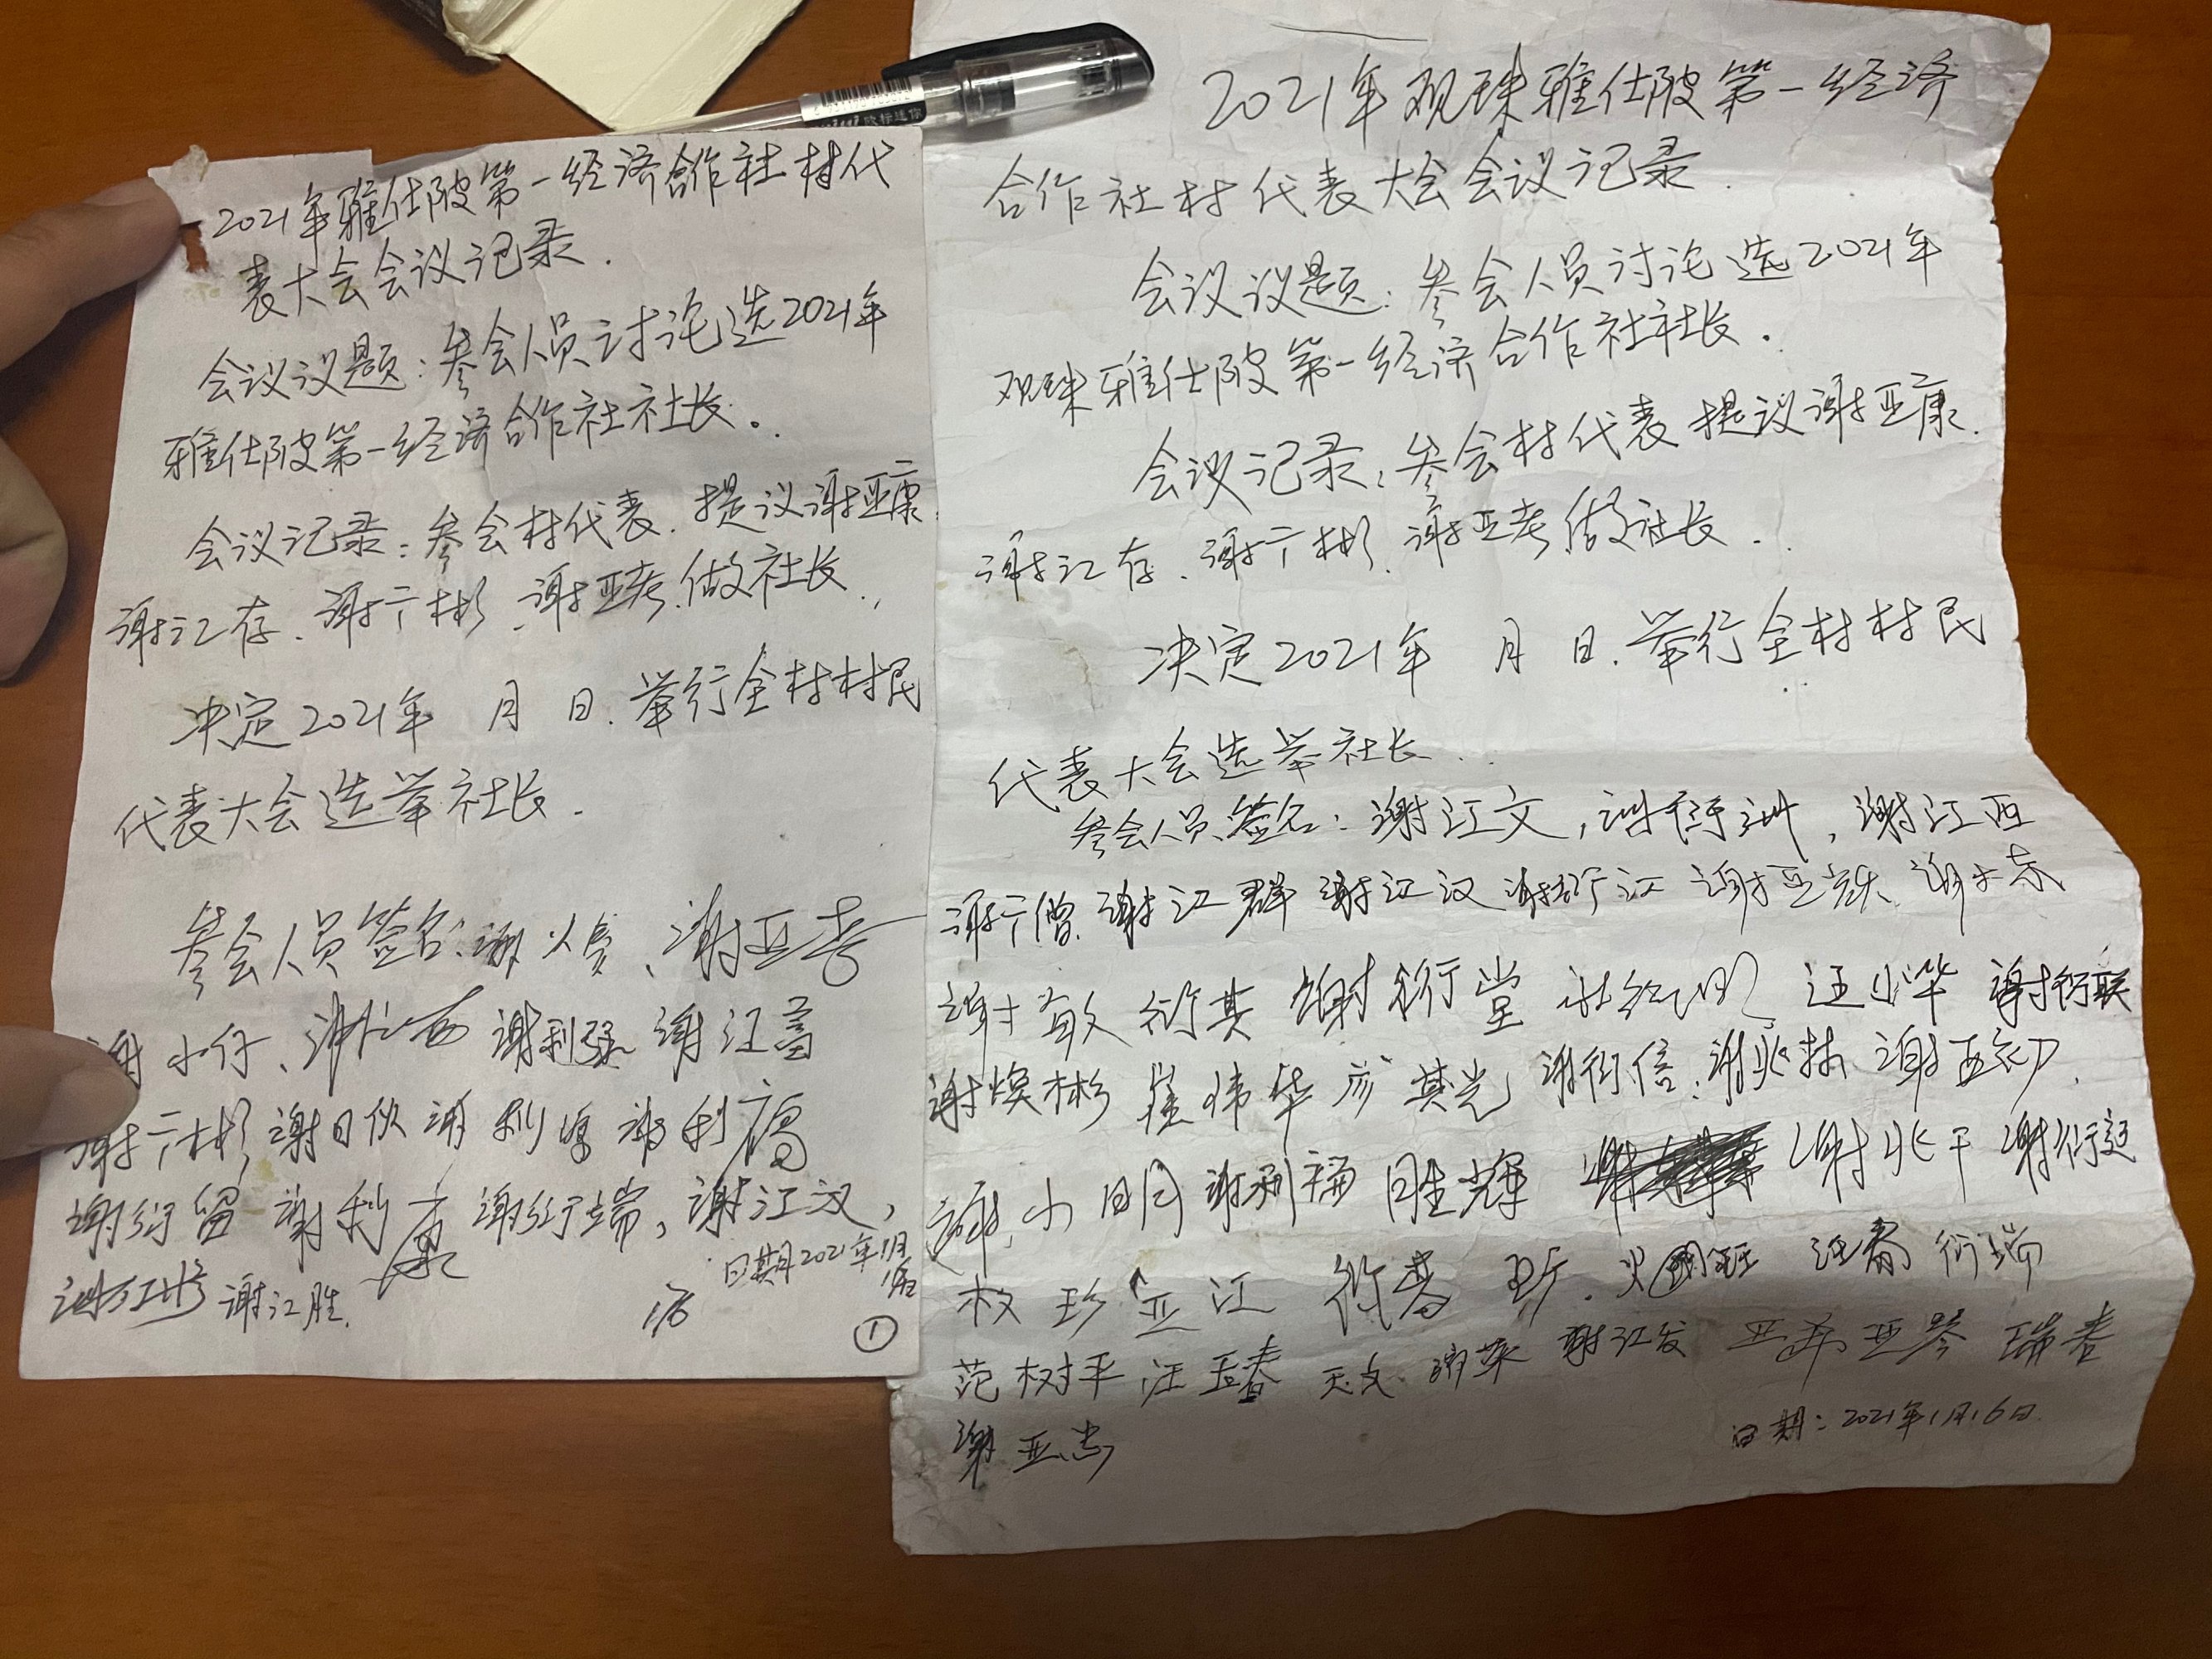 2021年雅仕陂第一经济合作社村代
表大会会议记录.
会议议题:参会人员讨论选2021年
雅仕陂第一经济合作社社长.
会议记录:参会村代表.提议谢亚康
谢江存、谢广彬、谢亚考.做社长.
决定2021年 月 日.举行全村村民
代表大会选举社长.
参会人员签名:谢火 、谢亚
谢小仔、 谢利强 谢江富
谢广彬 谢日 谢利
谢衍留 谢利 谢衍端,谢江汉,
谢江胜.
日期2021年1月
①
2021年观珠雅仕陂第一经济
合作社村代表大会会议记录.
会议议题:参会人员讨论选2021年
观珠雅仕陂第一经济合作社社长.
会议记录:参会村代表提议谢亚康.
谢江存、谢广彬、谢亚考.做社长.
决定2021年 月 日.举行全村村民
代表大会选举社长.
参会人员签名:谢江文, 谢江西
谢广僧.谢江群 谢江汉 谢衍江 谢亚
谢敏 衍其 谢衍堂 汪小华 谢衍联
谢焕彬 崔伟华 彦其光 谢衍信.谢兆林 谢亚
谢小明 谢利福 胜辉 谢兆干 谢衍廷
权珍 亚江 汪春 衍端
范树平 汪玉春 天文 谢江发 亚琴 瑞春
谢亚志
日期:2021年1月16日